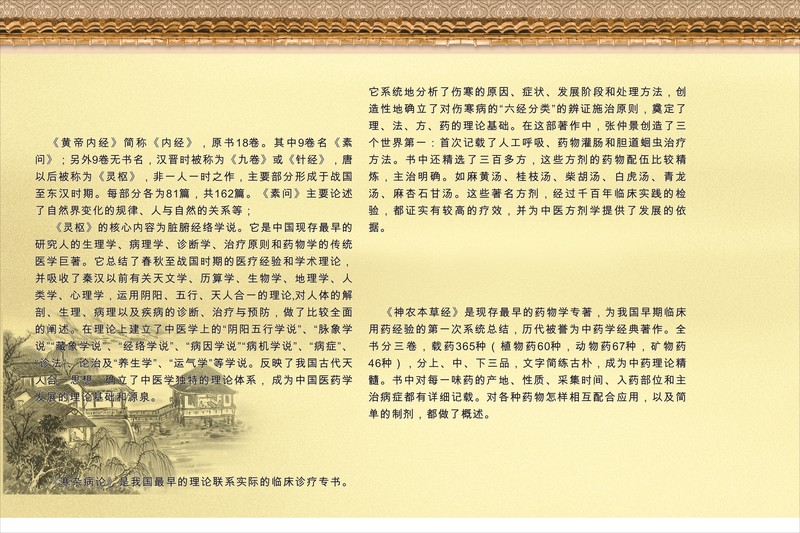 《黄帝内经》简称《内经》，原书18卷。其中9卷名《素
问》；另外9卷无书名，汉晋时被称为《九卷》或《针经》，唐
以后被称为《灵枢》，非一人一时之作，主要部分形成于战国
至东汉时期。每部分各为81篇，共162篇。《素问》主要论述
了自然界变化的规律、人与自然的关系等；
《灵枢》的核心内容为脏腑经络学说。它是中国现存最早的
研究人的生理学、病理学、诊断学、治疗原则和药物学的传统
医学巨著。它总结了春秋至战国时期的医疗经验和学术理论，
并吸收了秦汉以前有关天文学、历算学、生物学、地理学、人
类学、心理学，运用阴阳、五行、天人合一的理论,对人体的解
剖、生理、病理以及疾病的诊断、治疗与预防，做了比较全面
的阐述。在理论上建立了中医学上的“阴阳五行学说”、“脉象学
说”“藏象学说”、“经络学说”、“病因学说”“病机学说”、“病症”、
“诊法”、论治及“养生学”、“运气学”等学说。反映了我国古代天
人合一思想，确立了中医学独特的理论体系，成为中国医药学
发展的理论基础和源泉。
《寒杂病论》是我国最早的理论联系实际的临床诊疗专书。
它系统地分析了伤寒的原因、症状、发展阶段和处理方法，创
造性地确立了对伤寒病的“六经分类”的辨证施治原则，奠定了
理、法、方、药的理论基础。在这部著作中，张仲景创造了三
个世界第一：首次记载了人工呼吸、药物灌肠和胆道蛔虫治疗
方法。书中还精选了三百多方，这些方剂的药物配伍比较精
炼，主治明确。如麻黄汤、桂枝汤、柴胡汤、白虎汤、青龙
汤、麻杏石甘汤。这些著名方剂，经过千百年临床实践的检
验，都证实有较高的疗效，并为中医方剂学提供了发展的依
据。
《神农本草经》是现存最早的药物学专著，为我国早期临床
用药经验的第一次系统总结，历代被誉为中药学经典著作。全
书分三卷，载药365种（植物药60种，动物药67种，矿物药
46种），分上、中、下三品，文字简练古朴，成为中药理论精
髓。书中对每一味药的产地、性质、采集时间、入药部位和主
治病症都有详细记载。对各种药物怎样相互配合应用，以及简
单的制剂，都做了概述。